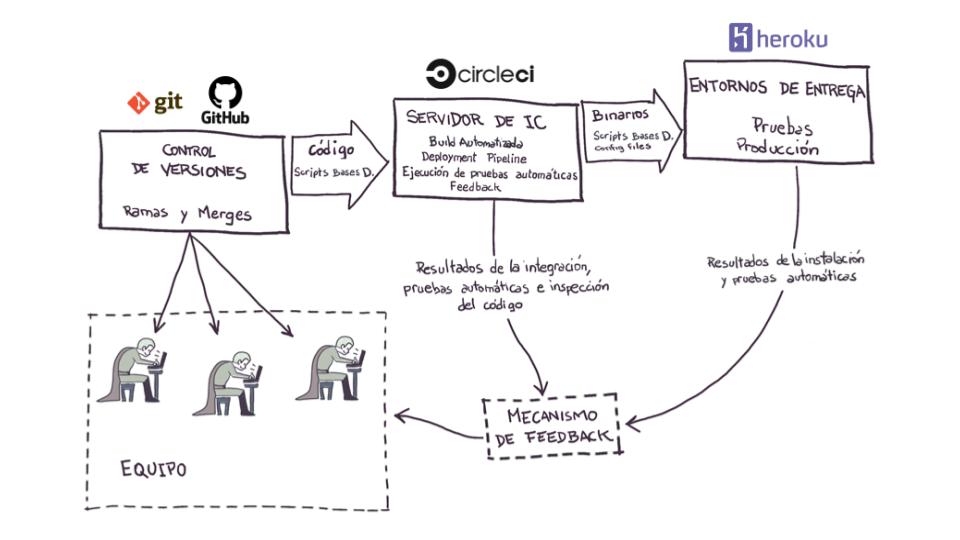 git
GitHub
CONTROL
DE VERSIONES
Ramas y Merges
Código
Scripts Bases D.
circleci
SERVIDOR DE IC
Build Automatizada
Deployment Pipeline
Ejecución de pruebas automáticas
Feedback
Binarios
Scripts Bases D.
Config files
heroku
ENTORNOS DE ENTREGA
Pruebas
Producción
Resultados de la integración,
pruebas automáticas e inspección
del código
Resultados de la instalación
y pruebas automáticas
MECANISMO
DE FEEDBACK
EQUIPO